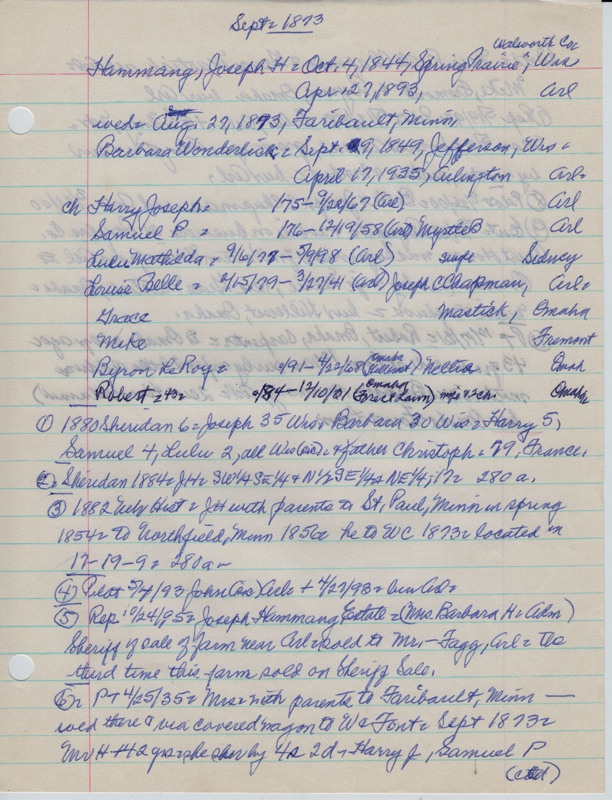 Sept = 1873
Walworth Co
Hammang, Joseph H = Oct. 4, 1844, Spring Prairie, Wis
Apr. 27, 1893, Arl
wed = Aug 27, 1873, Faribault, Minn,
Barbara Wonderlick = Sept. 9, 1849, Jefferson, Wis =
April 17, 1935, Arlington Arl=
ch Harry Joseph = 175 - 9/22/67 (Arl) Arl
Samuel P = 176 - 12/19/58 (Arl) Myrtle B Arl
Lulu Mathilda = 9/6/77 - 5/9/98 (Arl) Sidney
Louise Belle = 2/15/79 - 3/27/41 (Arl) Joseph C Chapman, Arl =
Grace Mastick, Omaha
Mike Fremont
Byron LeRoy = 9/91 - 4/22/68 (Omaha) Nettie Omah
Robert = 9/84 - 12/10/01 (Omaha Forest Lawn) Omaha
① 1880 Sheridan 6 = Joseph 35 Wis, Barbara 30 Wis = Harry 5,
Samuel 4, Lulu 2, all Wis = & father Christoph = 79, France,
② = Sheridan 1884 = JH = SW¼ SE¼ & N½ SE¼ & NE¼, 17 = 280 a,
③ 1882 Hist = JH with parents to St, Paul, Minn in spring
1854 = to Northfield, Minn 1856 = he to WC 1873 = located in
17-19-9 = 280 a -
④ Pilot 5/4/93 John Arl + 4/27/93 =
⑤ Rep 10/24/95 = Joseph Hammang Estate = (Mrs Barbara H = Adm)
Sheriff of sale of farm near Arl = sold to Mr. - Fagg, Arl = the
third time this farm sold on Sheriff Sale.
P-T 4/25/35 = Mrs = with parents to Faribault, Minn —
wed there & via covered wagon to Wa = Sept 1873 =
by 4s 2d = Harry J, Samuel P
(ctd)